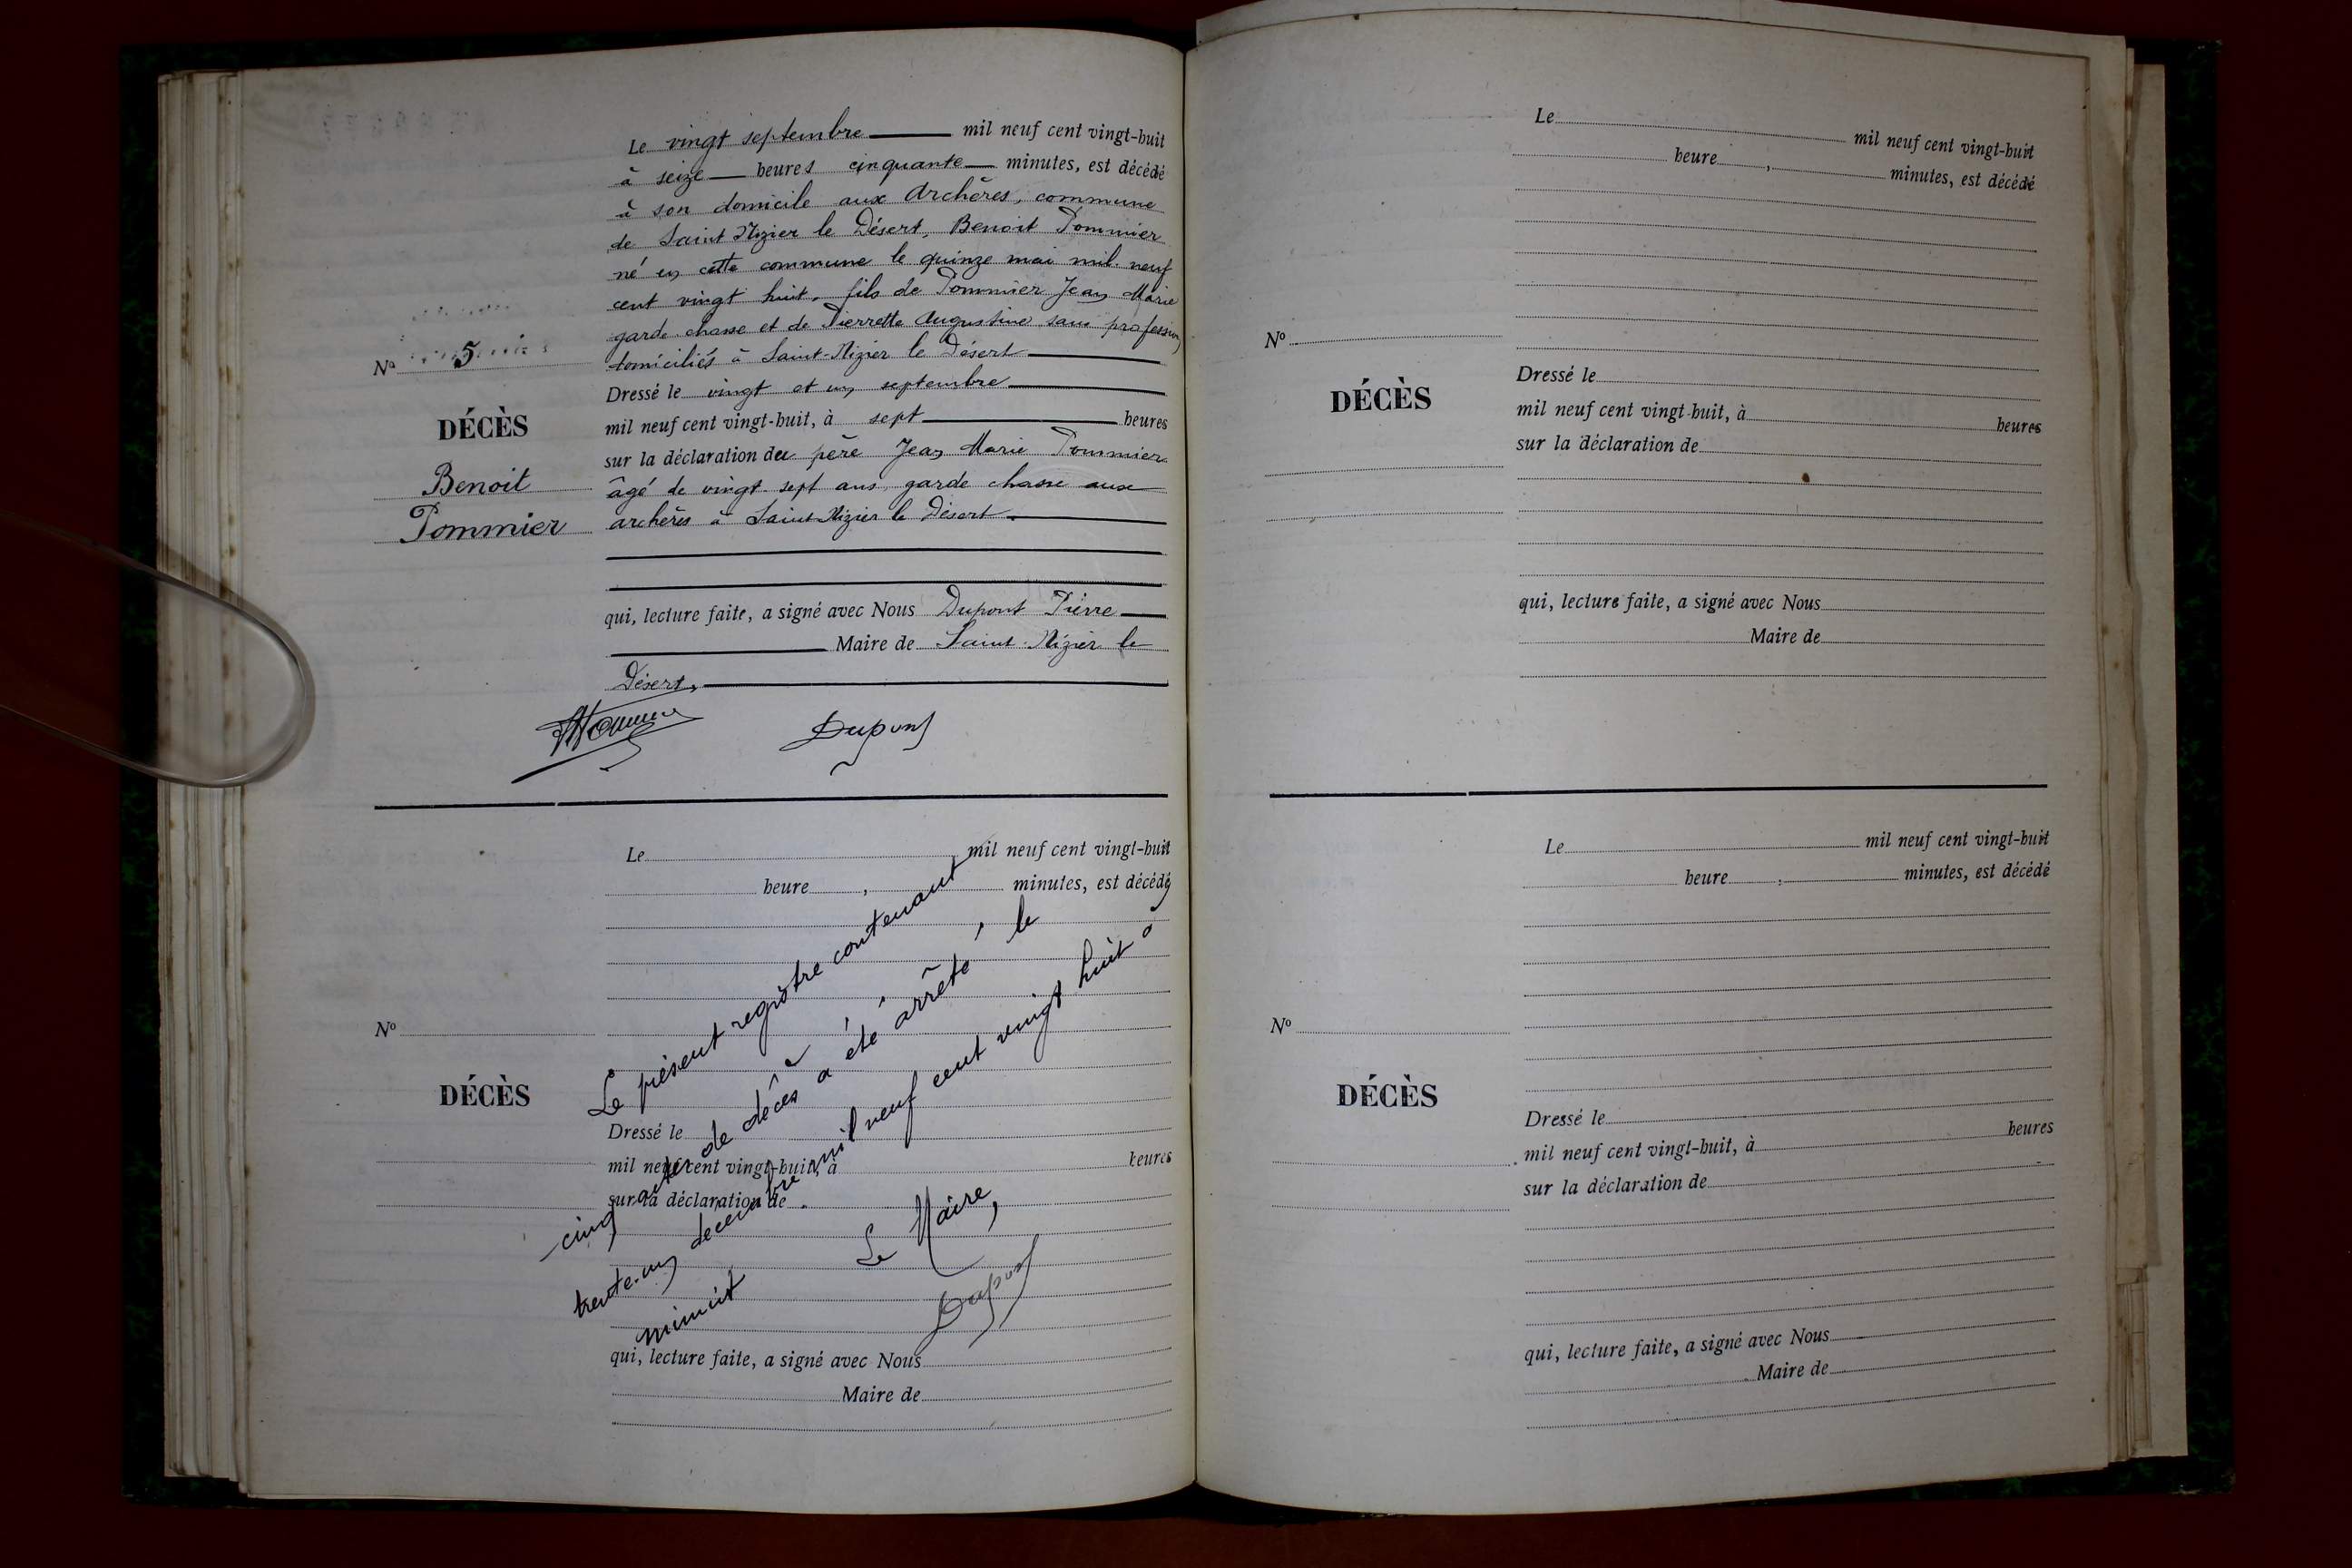 Le vingt septembre mil neuf cent vingt-huit
à seize heures cinquante minutes, est décédé
à son domicile aux Archères, commune
de Saint Nizier le Désert, Benoit Pommier
né en cette commune le quinze mai mil neuf
cent vingt huit, fils de Pommier Jean Marie
garde chasse et de Pierrette Augustine sans profession
domiciliés à Saint-Nizier le Désert
Dressé le vingt et un septembre
mil neuf cent vingt-huit, à sept heures
sur la déclaration du père Jean Marie Pommier
âgé de vingt-sept ans, garde chasse aux
archères à Saint-Nizier le Désert
qui, lecture faite, a signé avec Nous Dupont Pierre
Maire de Saint-Nizier le
Désert.
Dupont
No 5
DÉCÈS
Benoit
Pommier
Le mil neuf cent vingt-huit
heure , minutes, est décédé
No
DÉCÈS
Dressé le
mil neuf cent vingt-huit, à heures
sur la déclaration de
qui, lecture faite, a signé avec Nous
Maire de
Le présent registre contenant
cinq actes de décès a été arrêté le
trente-un décembre mil neuf cent vingt huit à
minuit
Le Maire,
Dupont
Le mil neuf cent vingt-huit
heure , minutes, est décédé
No
DÉCÈS
Dressé le
mil neuf cent vingt-huit, à heures
sur la déclaration de
qui, lecture faite, a signé avec Nous
Maire de
Le mil neuf cent vingt-huit
heure , minutes, est décédé
No
DÉCÈS
Dressé le
mil neuf cent vingt-huit, à heures
sur la déclaration de
qui, lecture faite, a signé avec Nous
Maire de